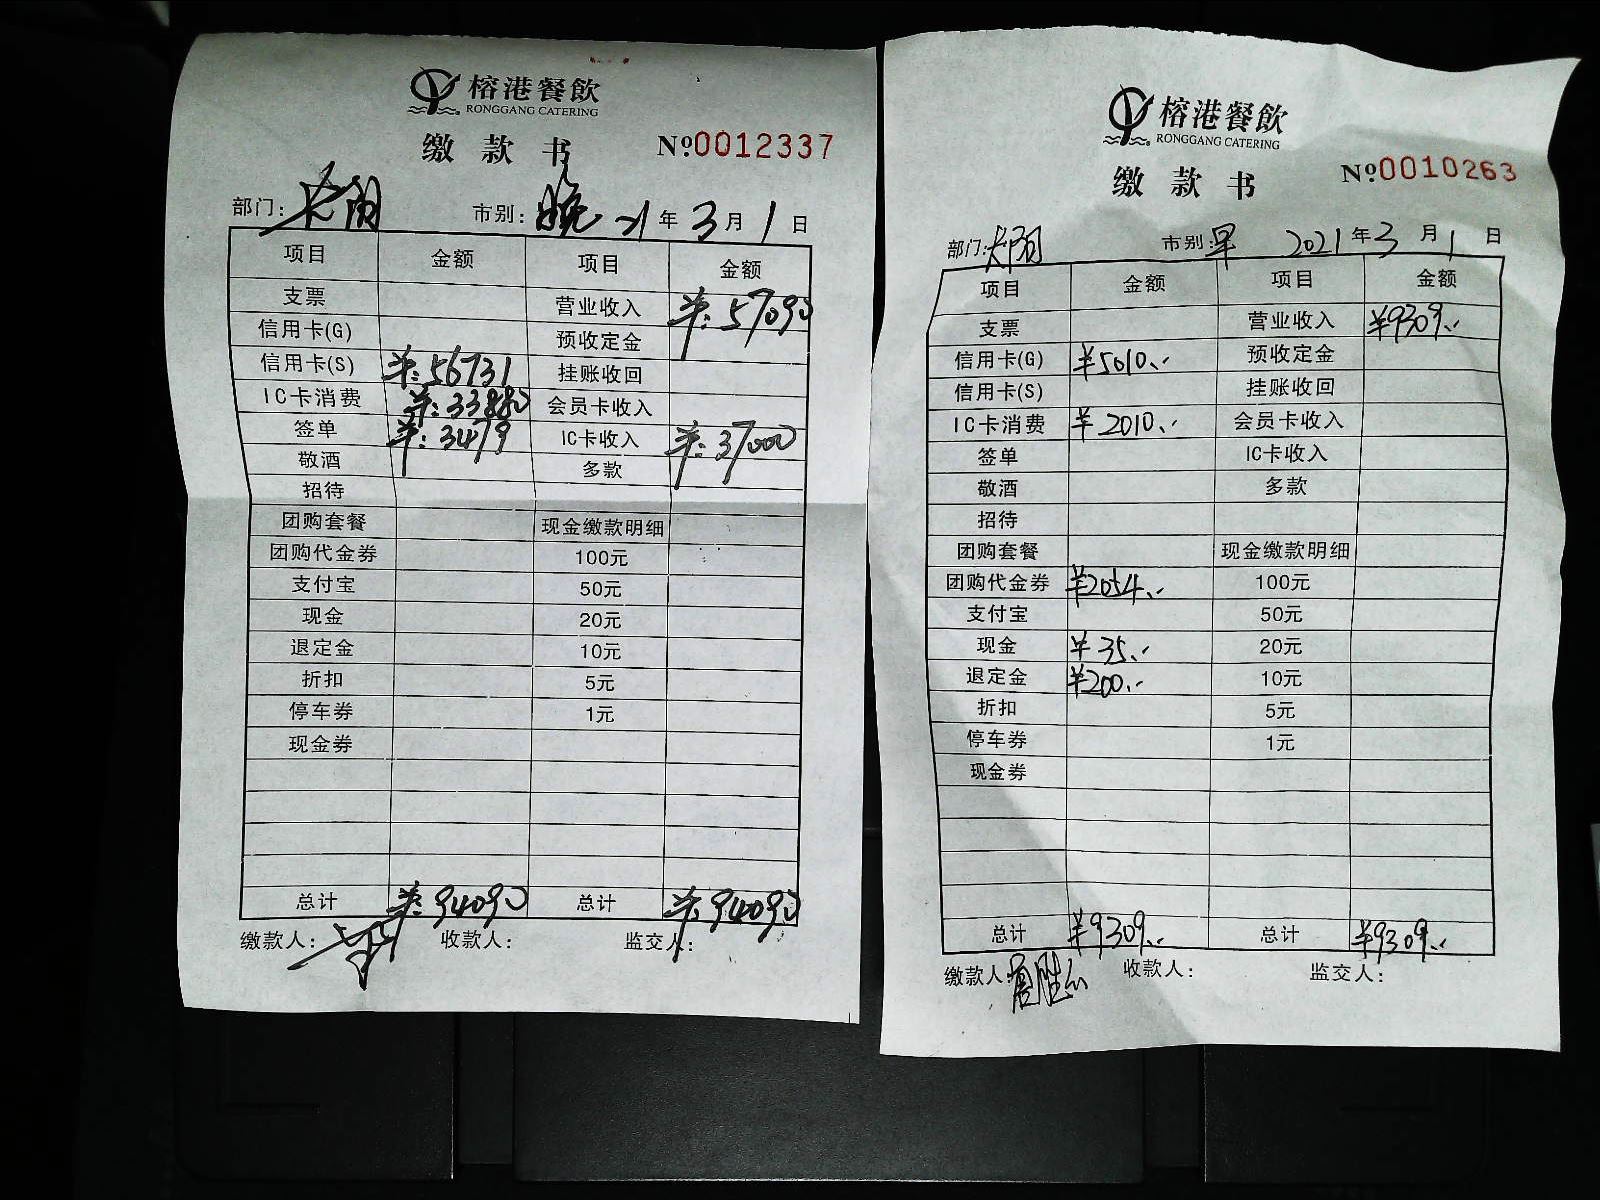 榕港餐飲
RONGGANG CATERING
缴款书 №0012337
部门： 市别：晚 21年3月1日
项目 金额 项目 金额
支票 营业收入 ¥:57090
信用卡(G) 预收定金
信用卡(S) ¥:56731 挂账收回
IC卡消费 ¥:33880 会员卡收入
签单 ¥:3479 IC卡收入 ¥:37000
敬酒 多款
招待
团购套餐 现金缴款明细
团购代金券 100元
支付宝 50元
现金 20元
退定金 10元
折扣 5元
停车券 1元
现金券
总计 ¥:94090 总计 ¥:94090
缴款人： 收款人： 监交人：
榕港餐飲
RONGGANG CATERING
缴款书 №0010263
部门： 市别：早 2021年3月1日
项目 金额 项目 金额
支票 营业收入 ¥9309..
信用卡(G) ¥5010.. 预收定金
信用卡(S) 挂账收回
IC卡消费 ¥2010.. 会员卡收入
签单 IC卡收入
敬酒 多款
招待
团购套餐 现金缴款明细
团购代金券 ¥2054.. 100元
支付宝 50元
现金 ¥35.. 20元
退定金 ¥200.. 10元
折扣 5元
停车券 1元
现金券
总计 ¥9309.. 总计 ¥9309..
缴款人： 收款人： 监交人：